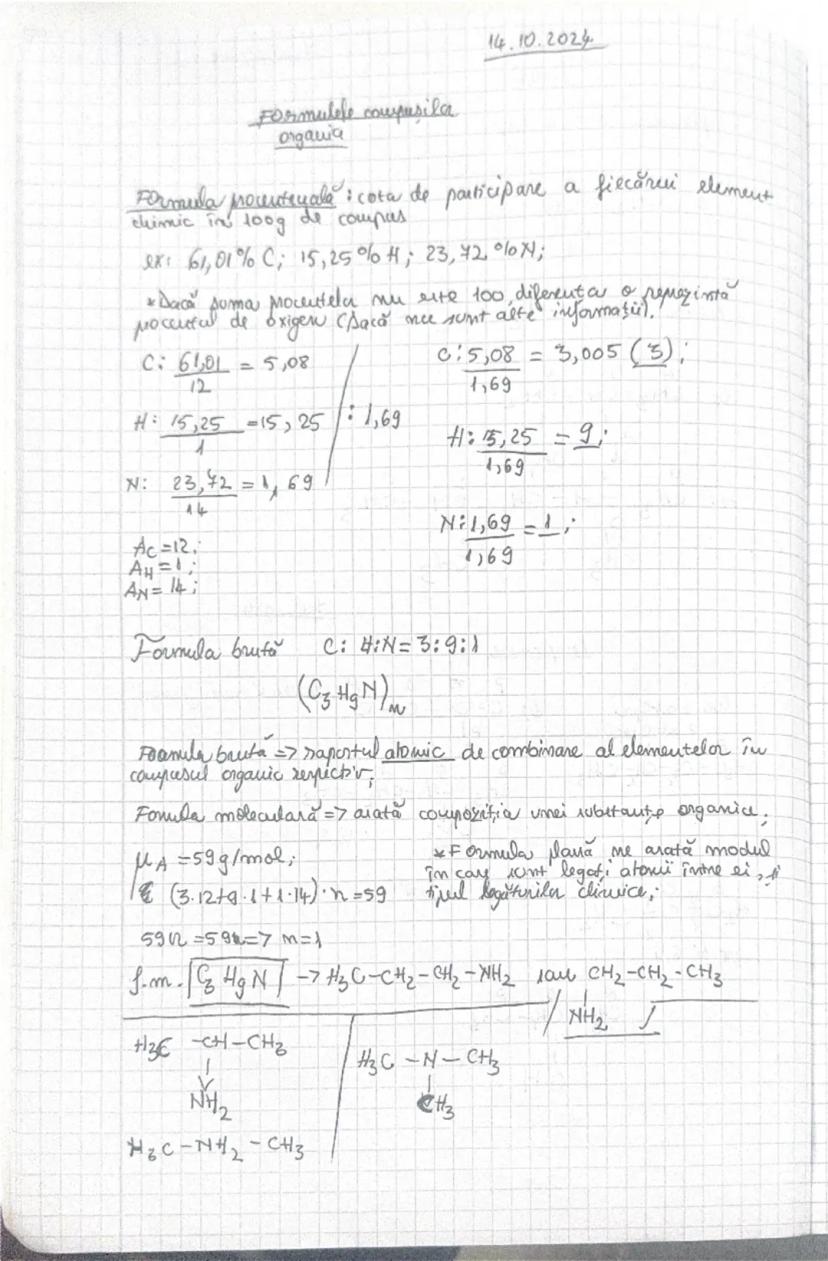 14.10.2024
Formulele compușilor
organici
Formula procentuală: cota de participare a fiecărui element
chimic în 100g de compus
ex: 61,01% C; 15,25% H; 23,72 % N;
*Dacă suma procentelor nu este 100, diferența o reprezintă
procentul de oxigen (Dacă nu sunt alte informații).
C: 61,01/12 = 5,08
H: 15,25/1 = 15,25 / : 1,69
N: 23,72/14 = 1,69
C: 5,08/1,69 = 3,005 (3);
H: 15,25/1,69 = 9;
N: 1,69/1,69 = 1;
AC = 12;
AH = 1;
AN = 14;
Formula brută C: H:N = 3:9:1
(C3H9N)n
Formula brută => raportul atomic de combinare al elementelor în
compusul organic respectiv;
Formula moleculară => arată compoziția unei substanțe organice;
μA = 59g/mol;
(3·12+9·1+1·14)·n = 59
59n = 59 => n = 1
*Formula plană ne arată modul
în care sunt legați atomii între ei, și
tipul legăturilor chimice;
f.m. C3H9N -> H3C-CH2-CH2-NH2 sau CH2-CH2-CH3
NH2
H3C -CH-CH3
NH2
H3C -N- CH3
CH3
H3C-NH2-CH3